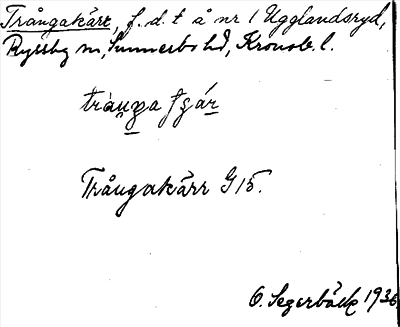 Trångakärr, f.d.t å nr 1 Ugglandsryd,
Ryssby sn, Sunnerbo hd, Kronob. l.
Trångakärr G 15.
O. Segerbäck 1936